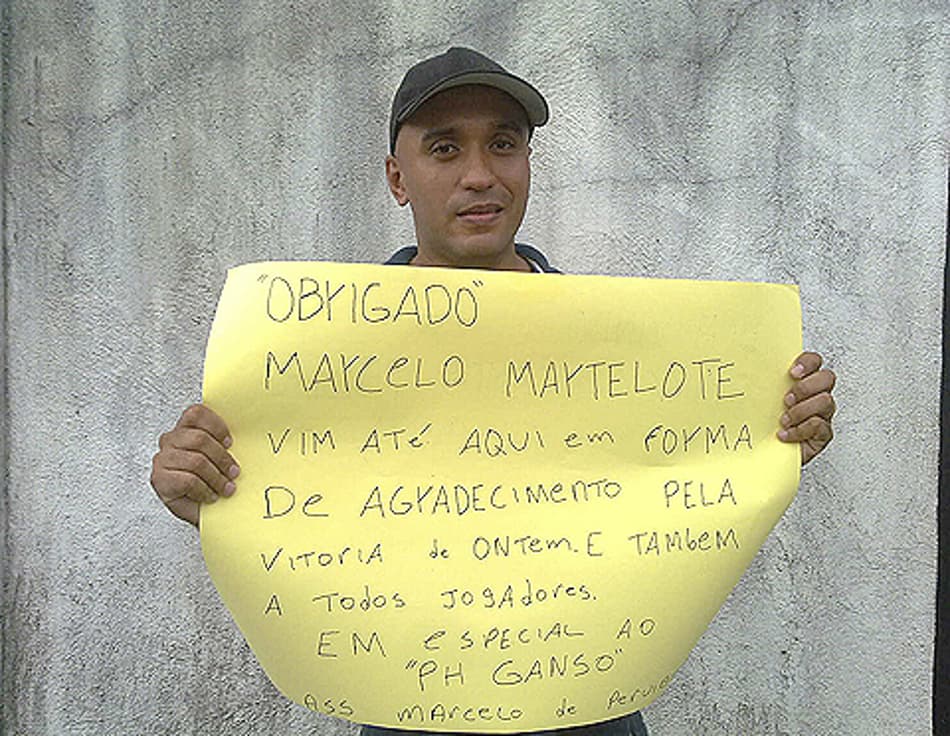 "OBrIGADO"
MArceLO MArTELOTE
VIM ATÉ AQUI em FOrMA
De AGrADECImeNTO PELA
VITOrIA de ONTem. E TAMbeM
A TODOS JOGADores.
EM eSPECIAL AO
"PH GANSO"
ASS MArceLO de